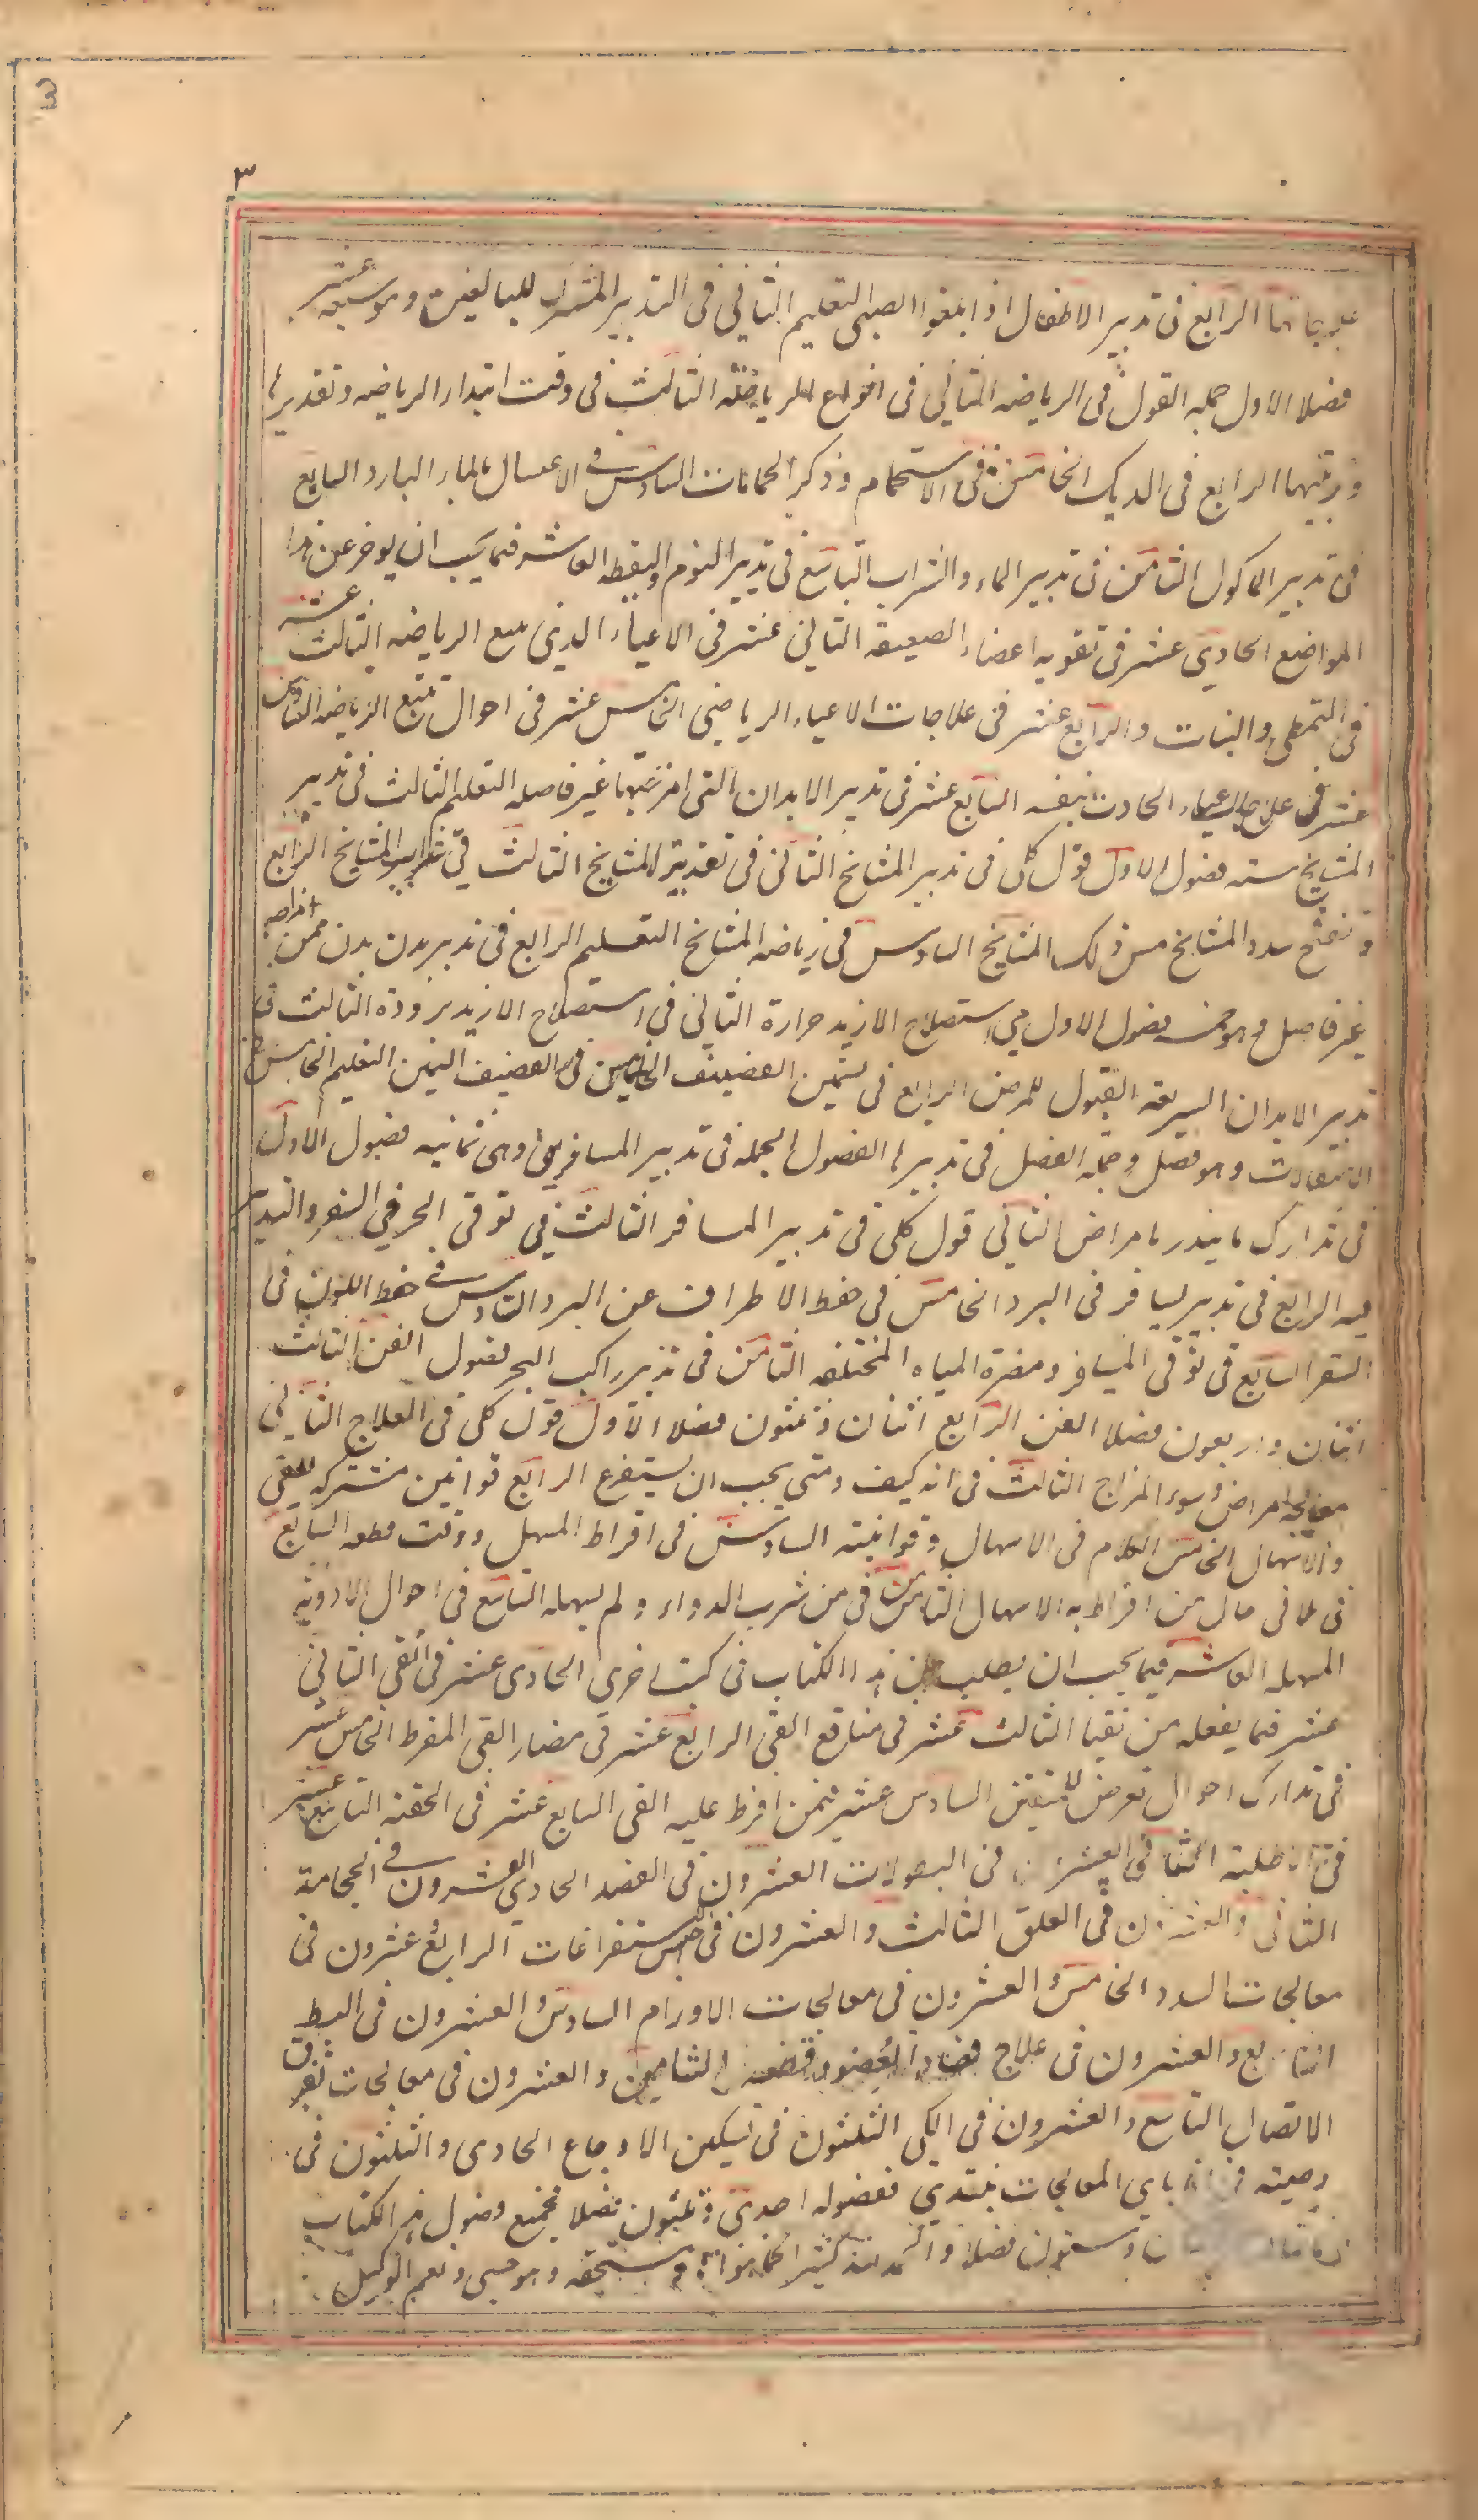 3
٣
علاجاتها الرابع فى تدبير الاطفال اذا بلغوا الصبى التعليم الثانى فى التدبير المشترك للبالغين وهو سبعه عشر
فصلا الاول جمله القول فى الرياضه الثانى فى انواع الرياضه الثالث فى وقت ابتداء الرياضه وتقديرها
الرابع فى الدلك الخامس فى الاستحمام وذكر الحمامات السادس فى الاغتسال بالماء البارد السابع
فى تدبير الماكول الثامن فى تدبير الماء والشراب التاسع فى تدبير النوم واليقظه العاشر فيما يجب ان يوخر عن هذا
المواضع الحادى عشر فى تقويه اعضاء الضعيفه الثانى عشر فى الاعياء الذى يتبع الرياضه الثالث عشر
فى التمطى والرابع عشر فى علاجات الاعياء الرياضى الخامس عشر فى احوال تتبع الرياضه السادس
عشر فى علاج الاعياء الحادث بنفسه السابع عشر فى تدبير الابدان التى امزجتها غير فاضله التعليم الثالث فى تدبير
المشايخ سته فصول الاول قول كلى فى تدبير المشايخ الثانى فى تغذية المشايخ الثالث فى شراب المشايخ الرابع
فى تفتيح سدد المشايخ الخامس فى دلك المشايخ السادس فى رياضه المشايخ التعليم الرابع فى تدبير بدن من مزاجه
غير فاضل وهو خمسه فصول الاول فى استصلاح الازيد حرارة الثانى فى استصلاح الازيد برودة الثالث فى
تدبير الابدان السريعه القبول للمرض الرابع فى تسمين القضيف الخامس فى تقضيف السمين التعليم الخامس فى
الانتقالات وهو فصل وجمله الفصل فى تدبير الفصول الجمله فى تدبير المسافرين وهى ثمانيه فصول الاول
فى تدارك ما ينذر بامراض الثانى قول كلى فى تدبير المسافر الثالث فى توقى الحر فى السفر والتدبير
فيه الرابع فى تدبير يسافر فى البرد الخامس فى حفظ الاطراف عن البرد السادس فى حفظ اللون فى
السفر السابع فى توقى المسافر ومضرة المياه المختلفه الثامن فى تدبير راكب البحر فصول الفن الثالث
اثنان واربعون فصلا الفن الرابع اثنان وثلثون فصلا الاول قول كلى فى العلاج الثانى
معالجه امراض سوء المزاج الثالث فى انه كيف ومتى يجب ان يستفرغ الرابع قوانين مشتركه للقى
والاسهال الخامس الكلام فى الاسهال وقوانينه السادس فى افراط المسهل ووقت قطعه السابع
فى تلافى حال من افراط به الاسهال الثامن فى من شرب الدواء ولم يسهله التاسع فى احوال الادويه
المسهله العاشر فيما يجب ان يطلب من هذا الكتاب فى كتب اخرى الحادى عشر فى القى الثانى
عشر فيما يفعله من تقيا الثالث عشر فى منافع القى الرابع عشر فى مضار القى المفرط الخامس عشر
فى تدارك احوال تعرض للمتقى السادس عشر فيمن افرط عليه القى السابع عشر فى الحقنه
فى الاطليه فى النطولات العشرون فى الفصد الحادى العشرون فى الحجامة
الثانى والعشرون فى العلق الثالث والعشرون فى حبس استفراغات الرابع عشرون فى
معالجات السدد الخامس العشرون فى معالجات الاورام السادس والعشرون فى البط
السابع والعشرون فى علاج فساد العضو وقطعه الثامن والعشرون فى معالجات تفرق
الاتصال التاسع والعشرون فى الكى الثلثون فى تسكين الاوجاع الحادى والثلثون فى
وصيه فى باى المعالجات نبتدى ففصوله احدى وثلثون فصلا فجميع فصول هذا الكتاب
وستون فصلا والحمد لله كثيرا كما هو مستحقه وهو حسبى ونعم الوكيل